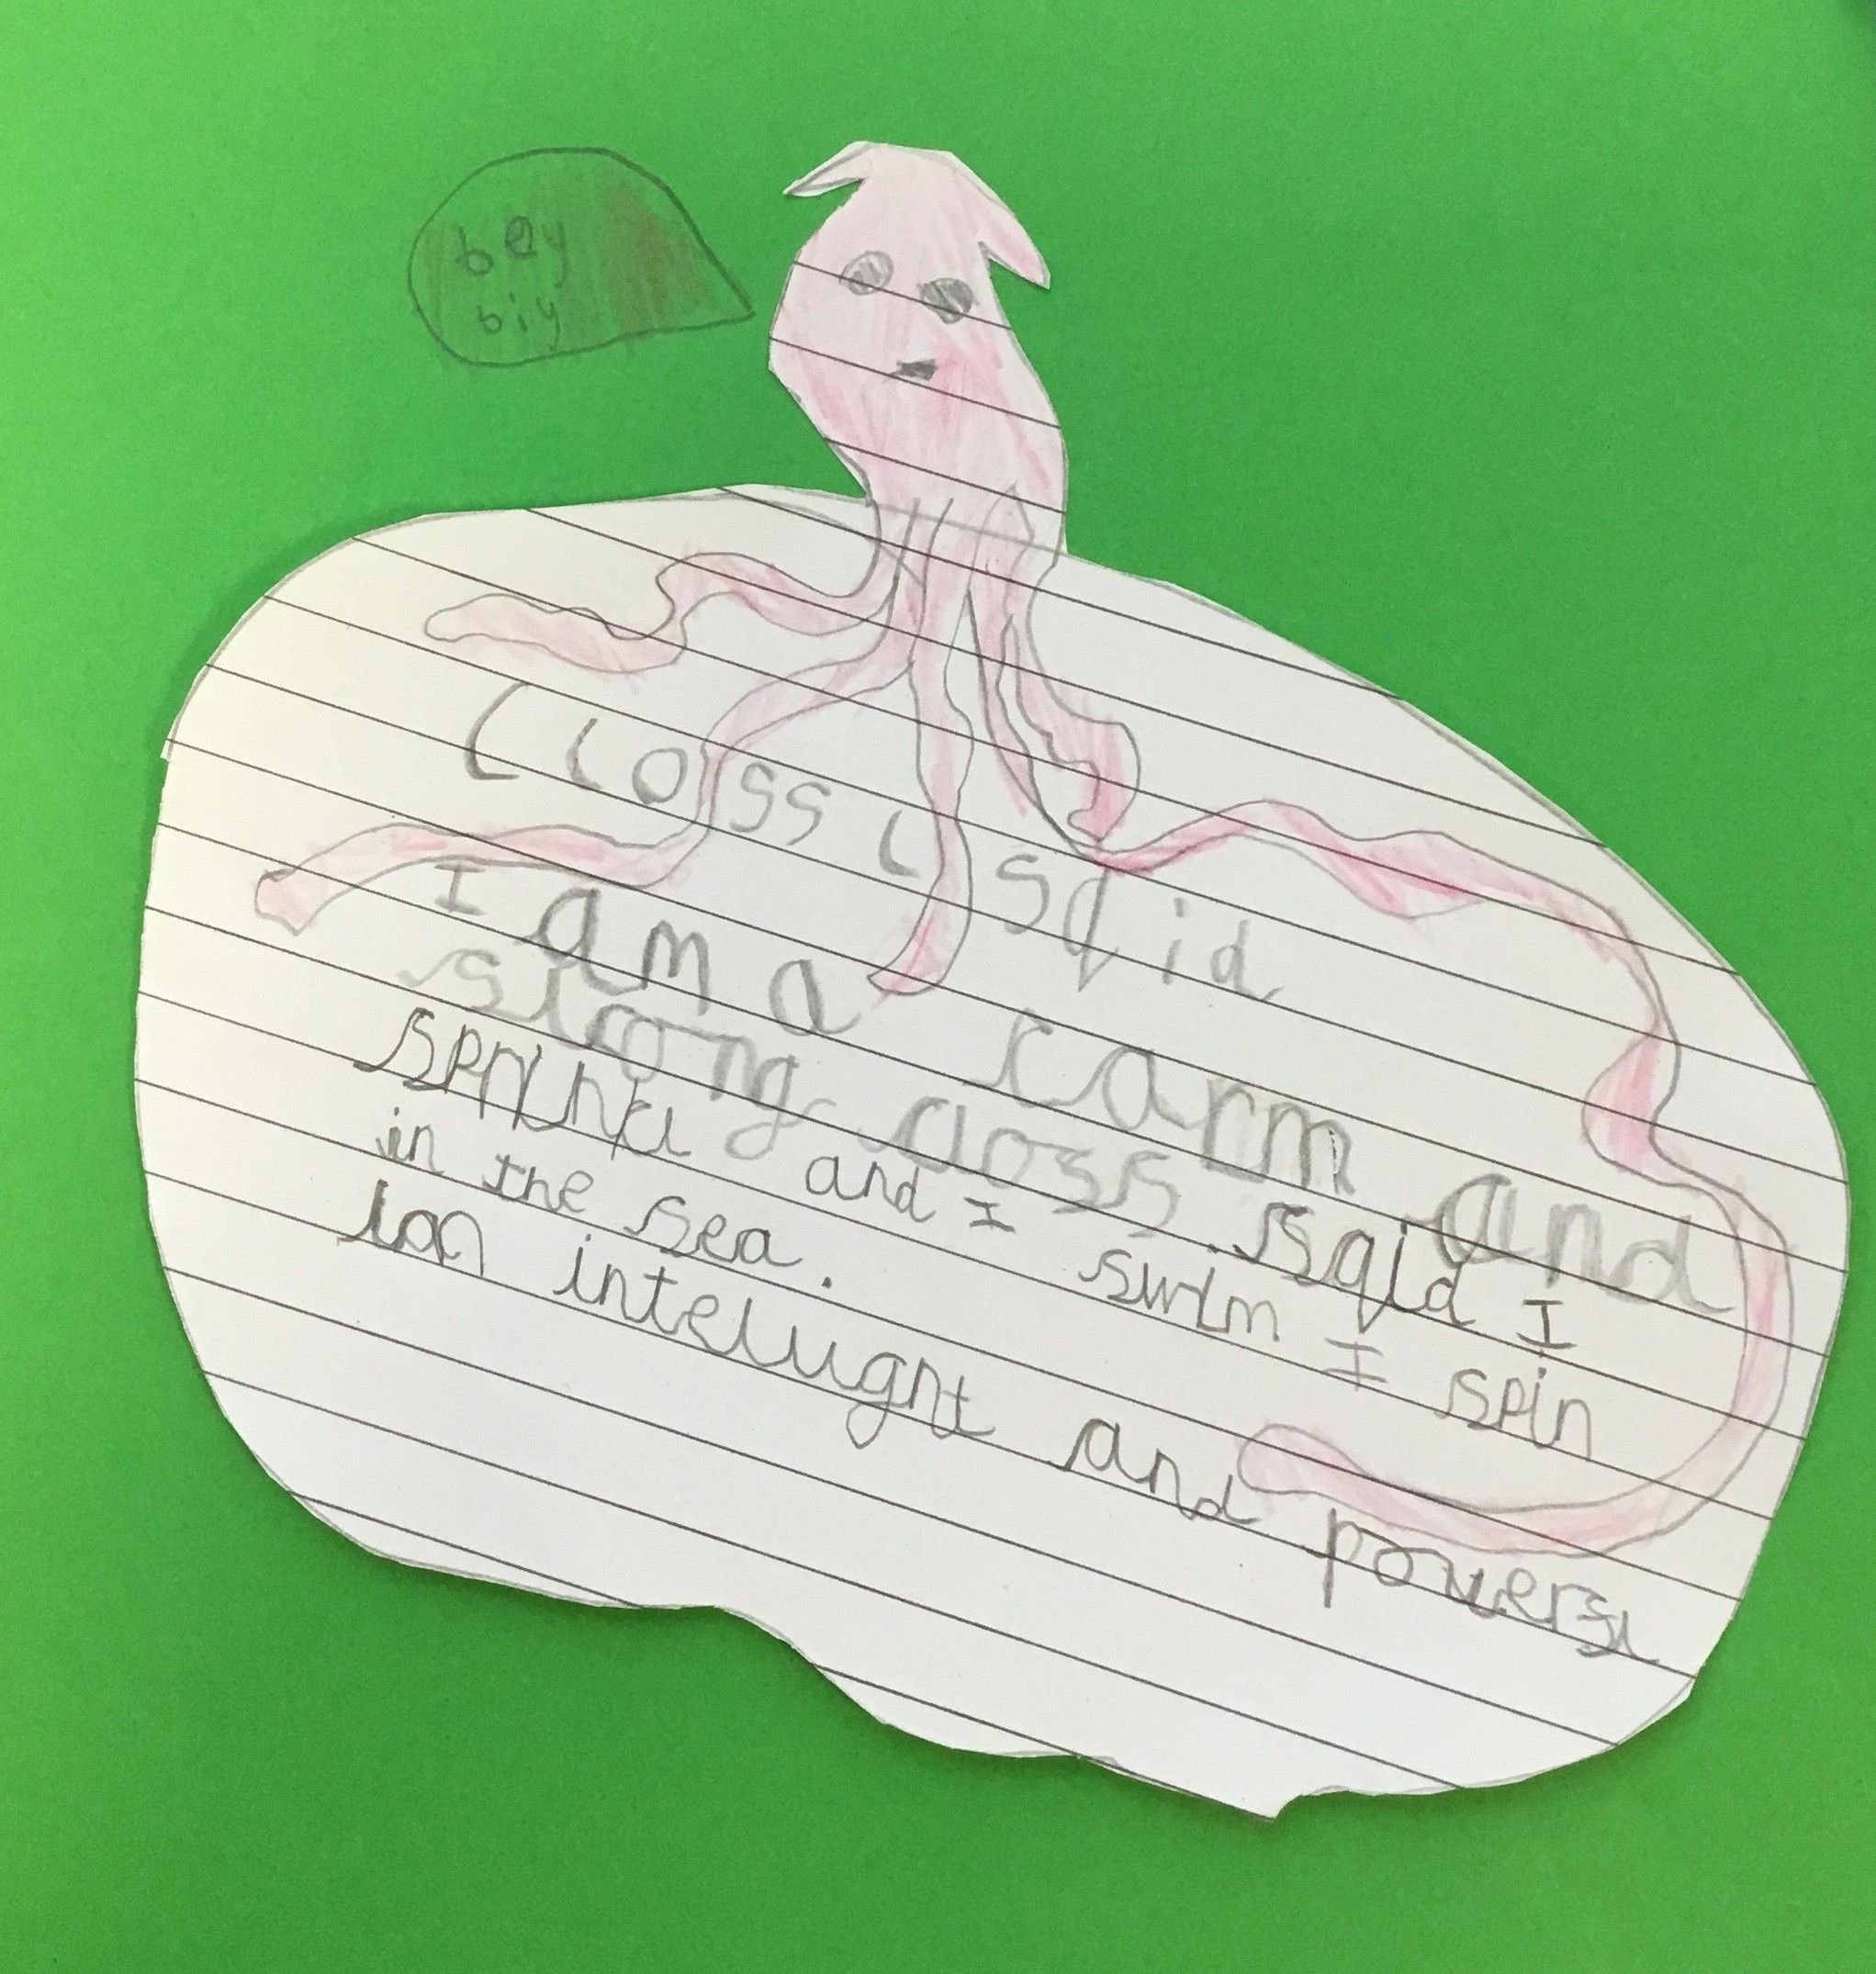 bay
biy
Clossl Sqid
I am a carm and
strong aoss sqid I
sprinkl and I swim I spin
in the sea.
intelught and powersl